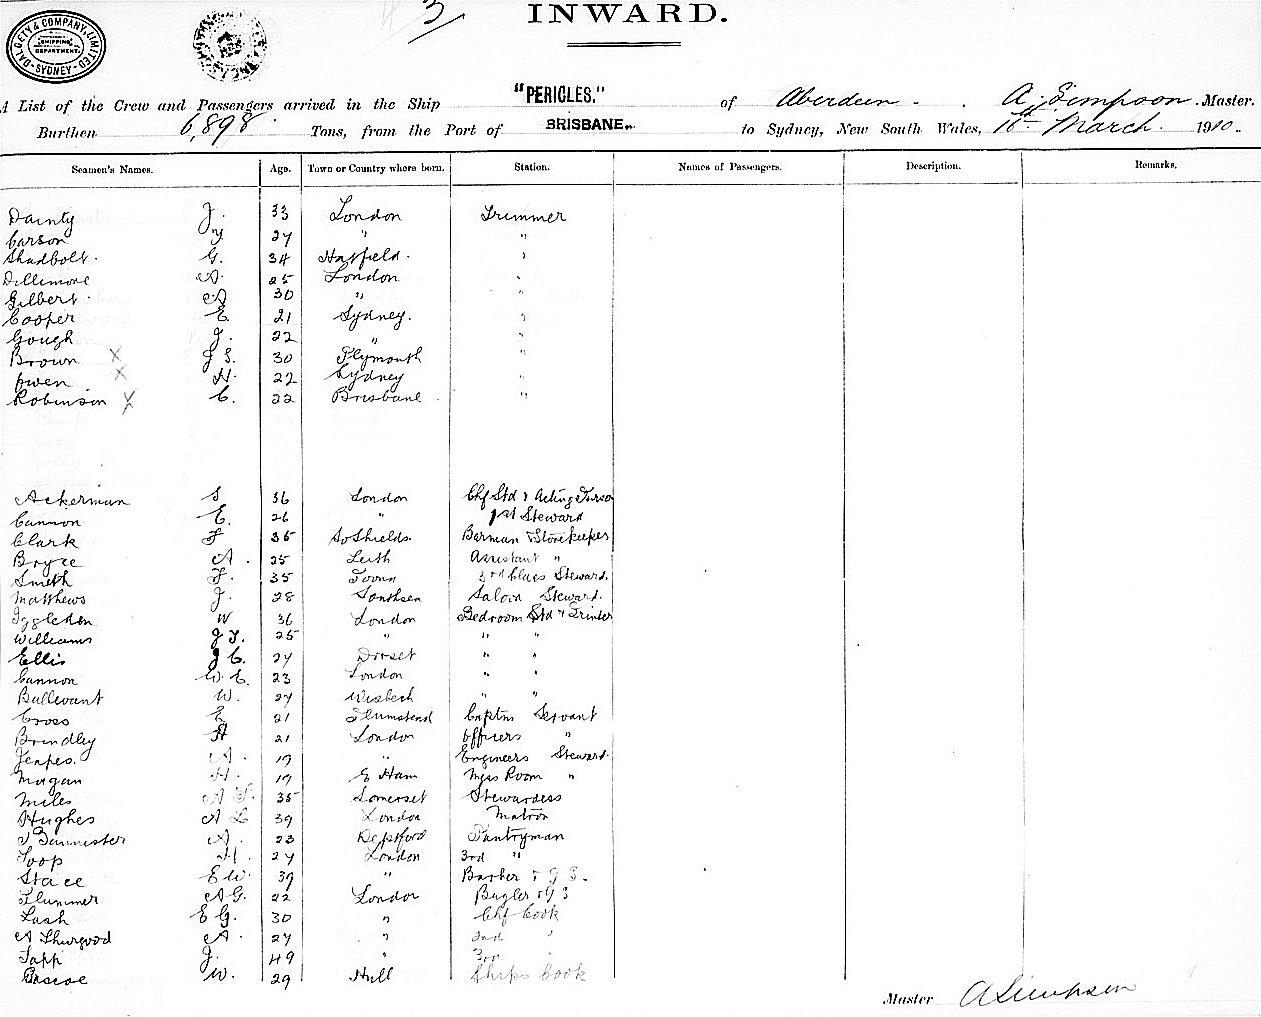 3
INWARD.
DALGETY & COMPANY, LIMITED
SHIPPING DEPARTMENT.
SYDNEY
A List of the Crew and Passengers arrived in the Ship "PERICLES." of Aberdeen. A. Simpson. Master.
Burthen 6,898 Tons, from the Port of BRISBANE. to Sydney, New South Wales, March. 1910.
Seamen's Names. Age. Town or Country where born. Station. Names of Passengers. Description. Remarks.
Dainty J. 33 London Trimmer
Carson 27 " "
Shadbolt. G. 34 Hatfield. "
Dillimore A. 25 London "
Gilbert. A 30 " "
Cooper E. 21 Sydney. "
Gough J. 22 " "
Brown X J S. 30 Plymouth "
Owen X H. 22 Sydney "
Robinson X C. 22 Brisbane "
Ackerman S 36 London Chf Std & Acting Purser
Cannon E. 26 " 1st Steward
Clark F 35 So Shields. Barman & Storekeeper
Bryce A. 25 Leith Assistant "
Smith F. 35 3rd Class Steward.
Matthews J. 28 Southsea Saloon Steward.
Iggleden W 36 London Bedroom Std & Printer
Williams J T. 25 " " "
Ellis J C. 27 Dorset " "
Cannon W. E. 23 London " "
Bullevant W. 27 Wisbech " "
Cross E 21 Plumstead Captns Servant
Brindley H 21 London Officers "
A. 19 " Engineers Steward.
Magan H. 19 E Ham Mess Room "
Miles A 35 Somerset Stewardess
Hughes A L 39 London Matron
Bannister A. 23 Deptford Pantryman
Toop H. 27 London 3rd "
Stace E W. 39 " Barber & G S.
Plummer A G. 22 London Bugler & G S
Lash E G. 30 " Chf Cook
A Thurgood A. 27 " 2nd "
Tapp J. 49 " 3rd "
Bascoe W. 29 Hull Ships Cook
Master A Simpson